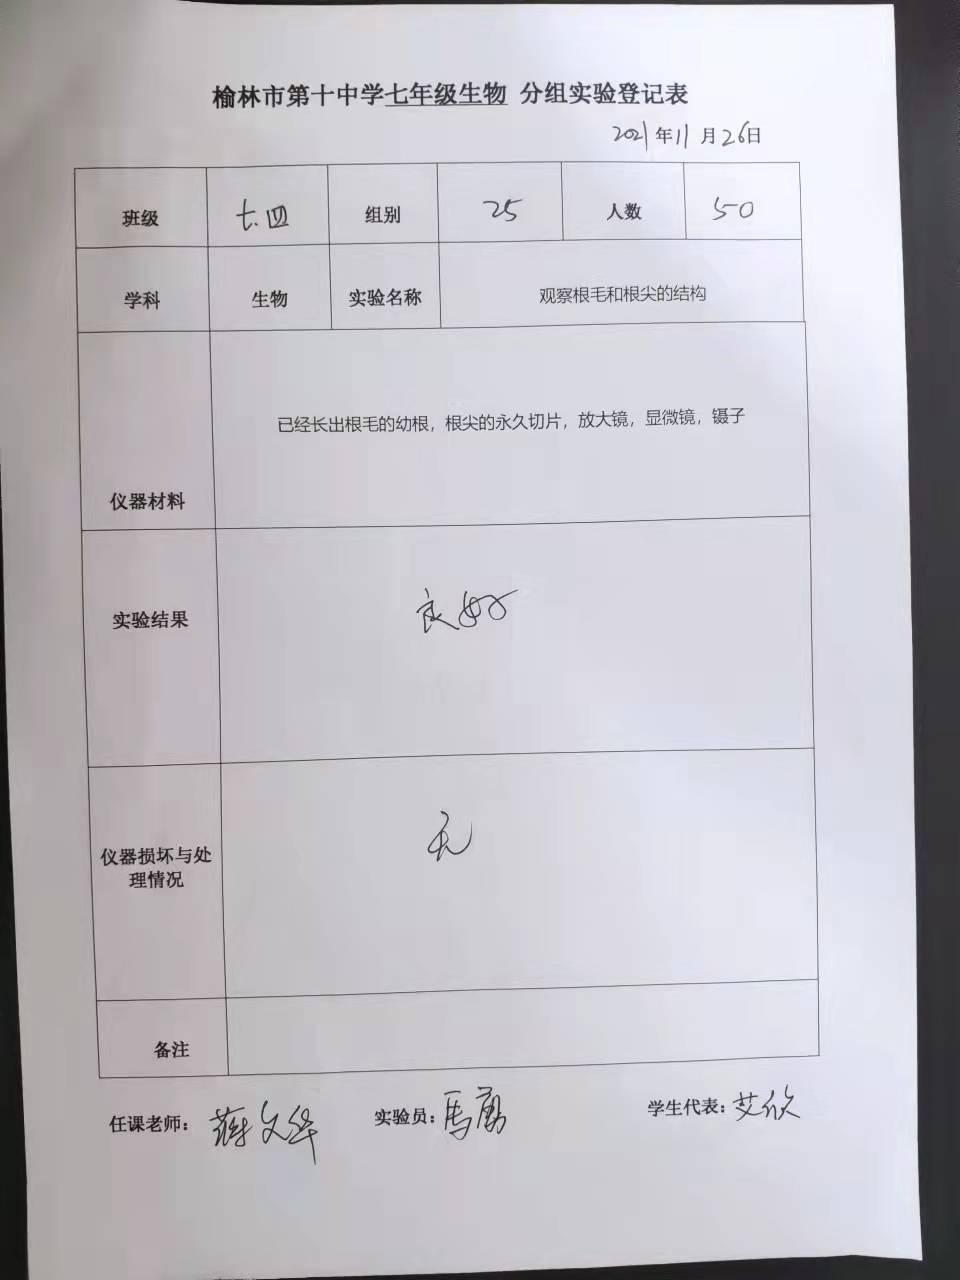 榆林市第十中学七年级生物 分组实验登记表
2021年11月26日
班级 七.四 组别 25 人数 50
学科 生物 实验名称 观察根毛和根尖的结构
已经长出根毛的幼根，根尖的永久切片，放大镜，显微镜，镊子
仪器材料
实验结果 良好
仪器损坏与处
理情况
无
备注
任课老师： 蒋文华 实验员：马勇 学生代表：艾欣